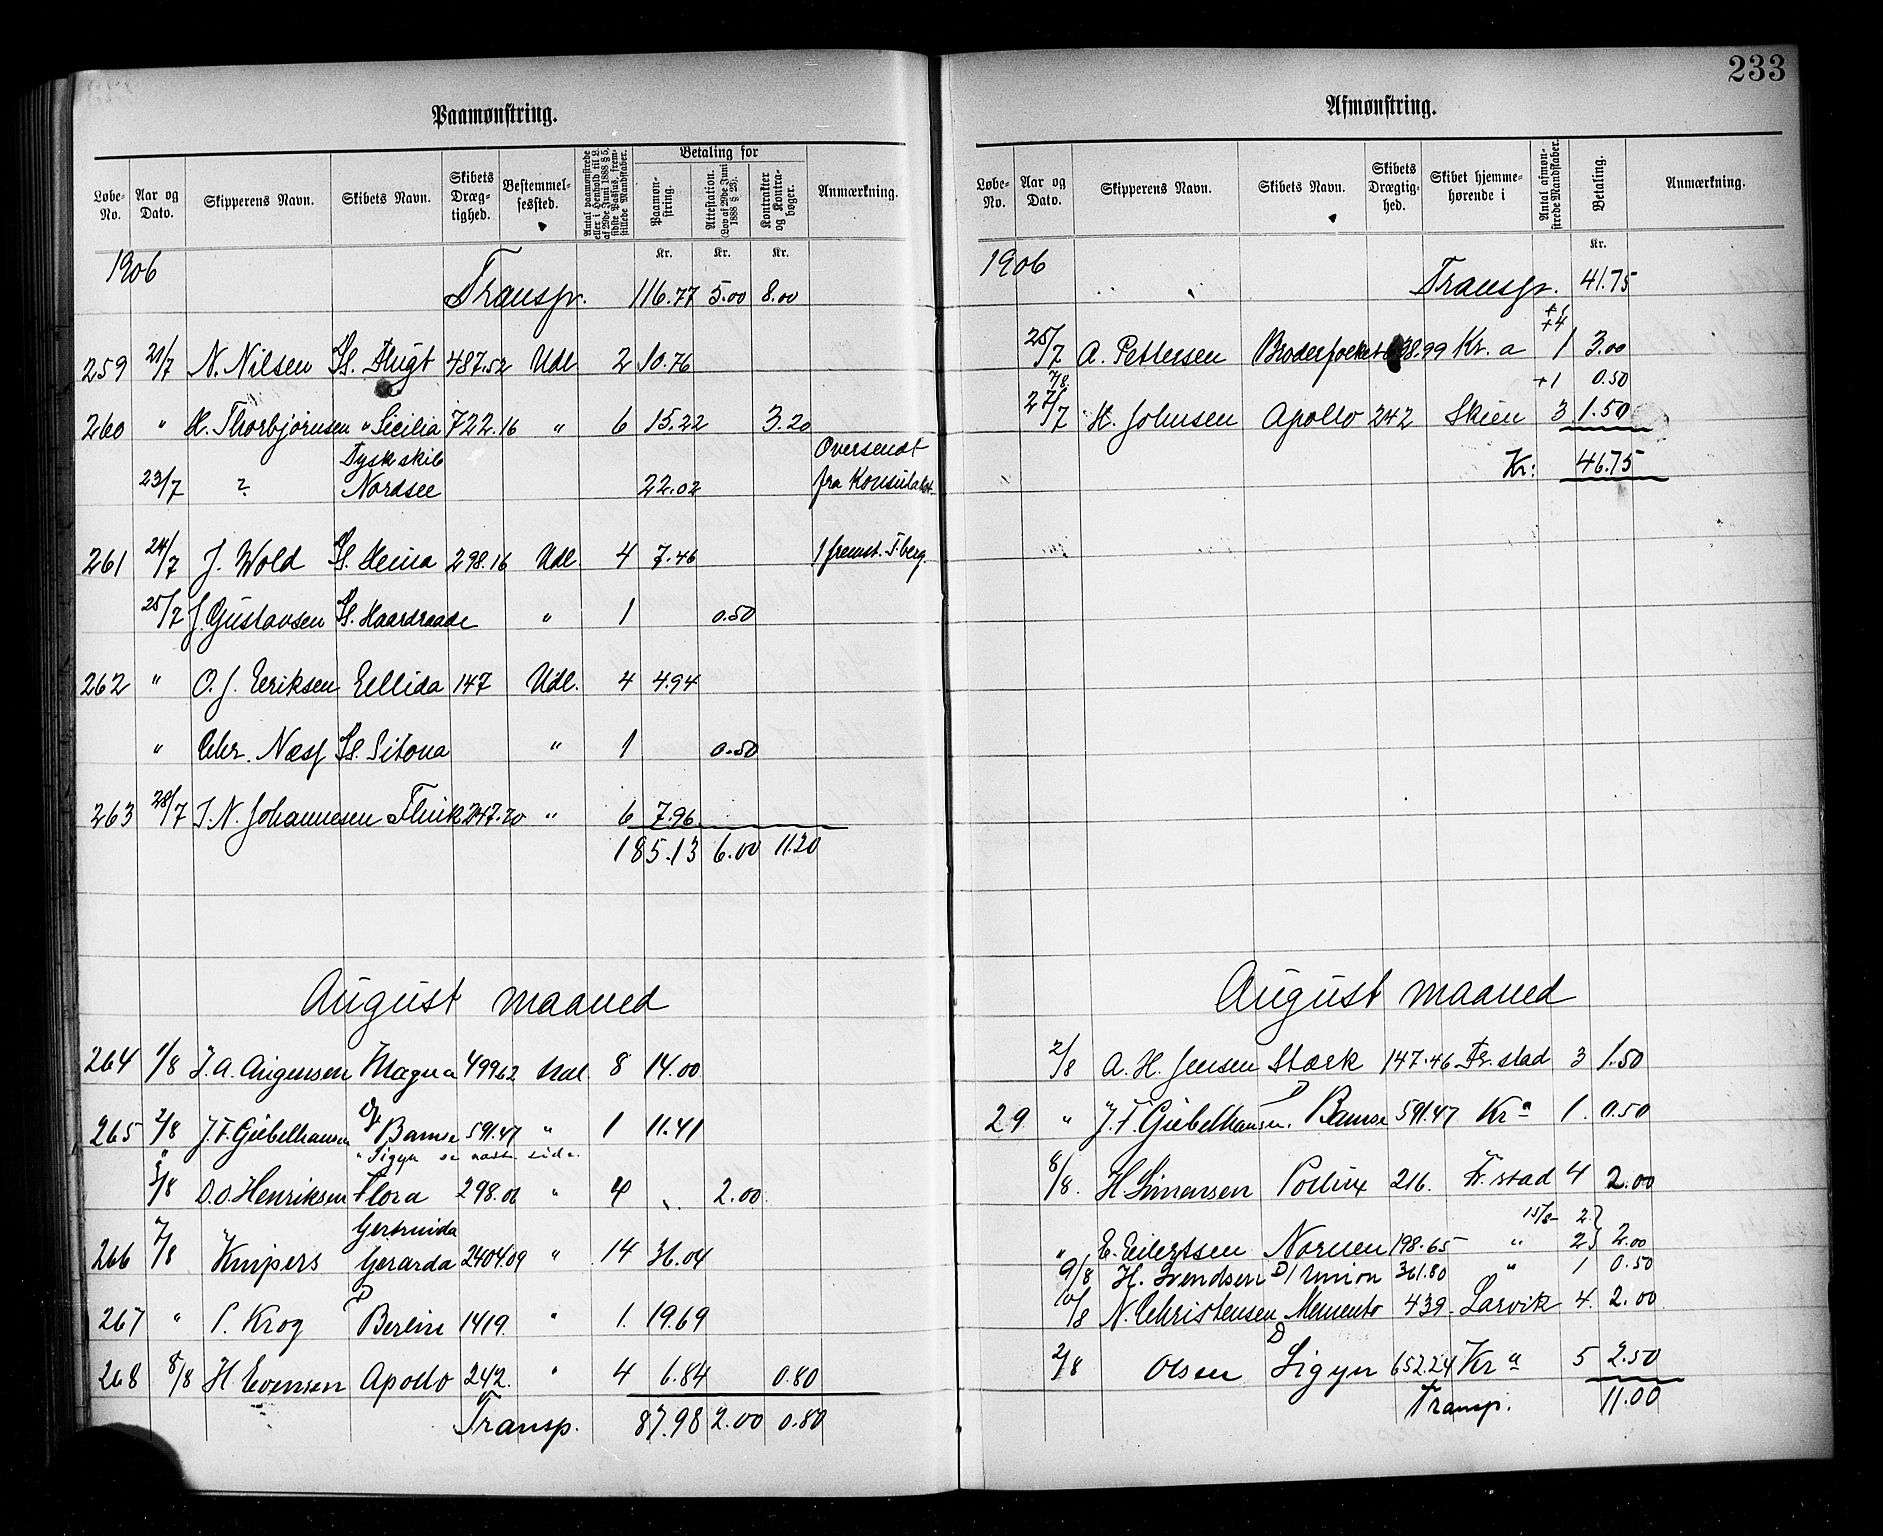 233
Paamønstring.
Løbe-No. Aar og Dato. Skipperens Navn. Skibets Navn. Skibets Dræg-tighed. Bestemmel-sessted. Antal paamønstrede eller i Henhold til L. af 29de Juni 1888 § 5, sidste Passus, frem-stillede Mandskaber. Betaling for Paamøn-string. Attestation. (Lov af 29de Juni 1888 § 23). Kontrakter og Kontra-bøger. Anmærkning.
Kr. Kr. Kr.
1906
Transp. 116.77 5.00 8.00
259 21/7 N. Nilsen Ss. Flugt 487.52 Udl 2 10.76
260 " H. Thorbjørnsen " Sicilia 722.16 " 6 15.22 3.20
Tysk skib Oversendt
23/7 ? Nordsee 22.02 fra Konsulatet.
261 24/7 J. Wold Ss. Heina 298.16 Udl. 4 7.46 1 fremst. T.berg.
25/7 J. Gustavsen Ss. Haardraade " 1 0.50
262 " O. J. Eriksen Ellida 147 Udl. 4 4.94
" Chr. Næss Ss. Sitona " 1 0.50
263 28/7 J. N. Johannesen Flink 247.20 " 6 7.96
185.13 6.00 11.20
August maaned
264 1/8 J. A. Augensen Magna 499.62 Udl. 8 14.00
265 2/8 J. F. Giebelhausen D/ Bamse 591.47 " 1 11.41
" " Sigyn se næste side.
3/8 D. O. Henriksen Flora 298.06 " 4 " 2.00
Gertruida
266 7/8 Knipers Gerarda 2404.09 " 14 36.04
267 " P. Krog D Berlin 1419. " 1. 19.69
268 8/8 H. Evensen Apollo 242. " 4 6.84 0.80
Transp. 87.98 2.00 0.80
Afmønstring.
Løbe-No. Aar og Dato. Skipperens Navn. Skibets Navn. Skibets Drægtig-hed. Skibet hjemme-hørende i Antal afmøn-strede Mandskaber. Betaling. Anmærkning.
Kr.
1906
Transp. 41.75
+1
+4
25/7 A. Pettersen Broderfolket 698.99 Kr. a 1 3.00
7/8. +1 0.50
27/7 H. Johnsen Apollo 242 Skien 3 1.50
Kr: 46.75
August maaned
2/8 A. H. Jensen Stærk 147.46 Fr. stad 3 1.50
29 " J. F. Giebelhausen. D Bamse 591.47 Kr a 1. 0.50
8/8. H. Simensen Pollux 216. Fr. stad 4 2.00
15/8 2
" E. Eilertsen Nornen 198.65 " 2 2.00
9/8 H. Svendsen D/ Union 361.80 " 1 0.50
10/8 N. Christensen Memento 439. Larvik 4. 2.00
2/8 Olsen D Sigyn 652.24 Kr a 5 2.50
Transp. 11.00